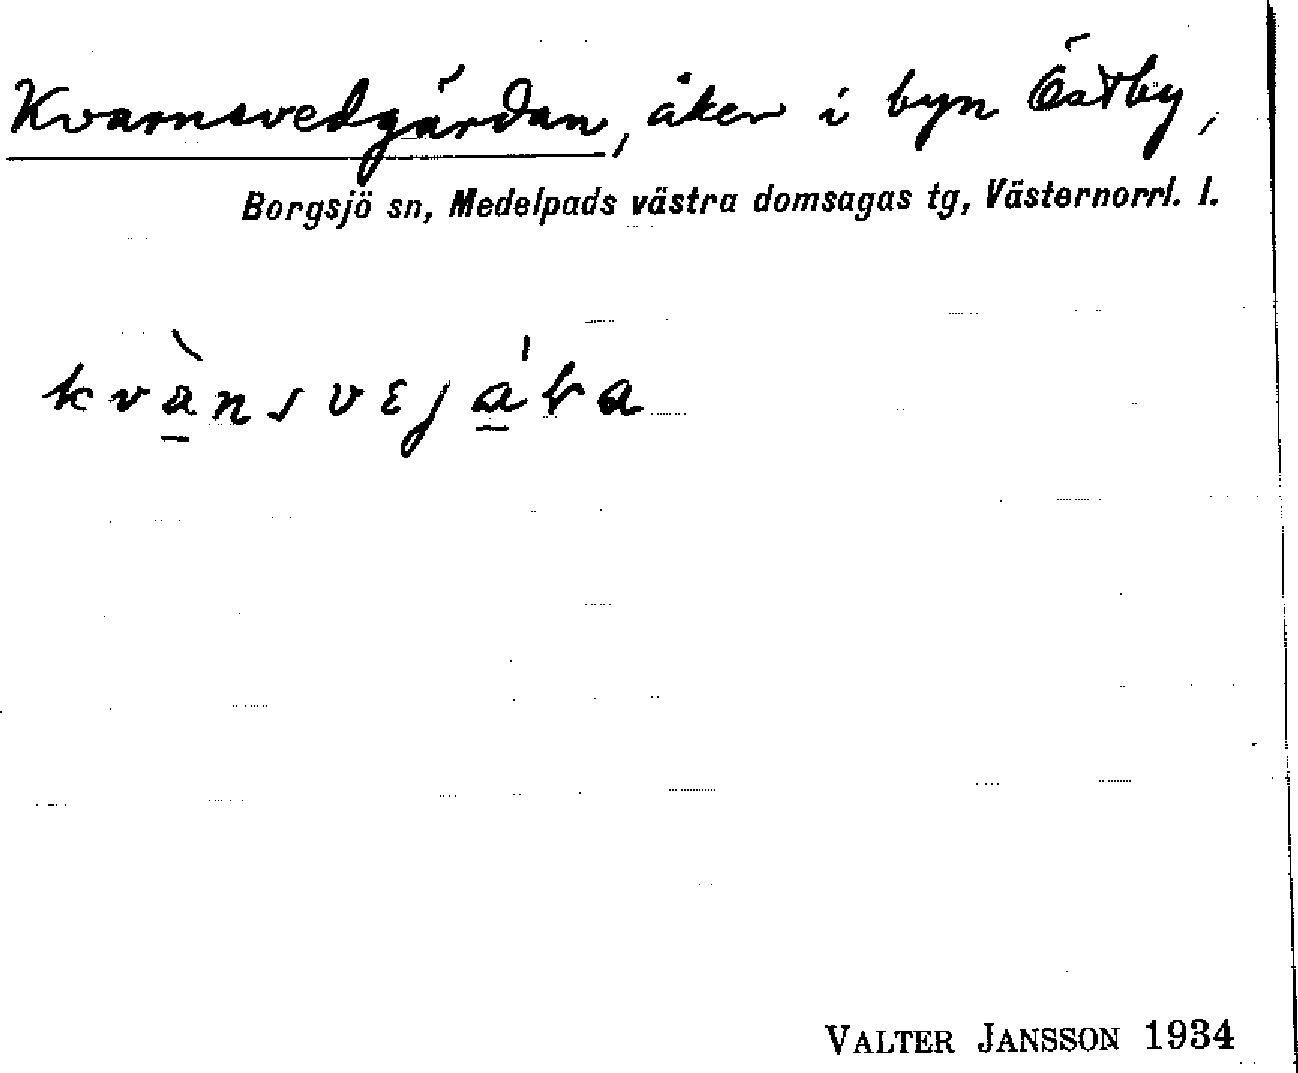 Kvarnsvedgärdan, åker i byn Östby,
Borgsjö sn, Medelpads västra domsagas tg, Västernorrl. l.
VALTER JANSSON 1934